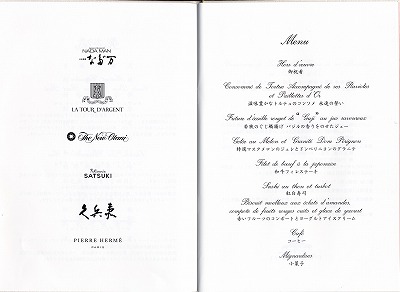 NADAMAN
なだ万
LA TOUR D'ARGENT
The New Otani
SATSUKI
久兵衛
PIERRE HERMÉ
PARIS
Menu
Hors d'œuvre
御祝肴
Consommé de Tortue Accompagné de ses Ravioles
et Paillettes d'Or
滋味豊かなトルテュのコンソメ 永遠の誓い
Friture d'écaille rouget de "Guji" au jus savoureux
若狭のぐじ鱗揚げ バジルの香りをのせたジュー
Gelée au Melon et Granité Dom Pérignon
特選マスクメロンのジュレとドンペリニョンのグラニテ
Filet de bœuf à la japonaise
和牛フィレステーキ
Sushi au thon et turbot
紅白寿司
Biscuit moelleux aux éclats d'amandes,
compote de fruits rouges cuits et glace de yaourt
赤いフルーツのコンポートとヨーグルトアイスクリーム
Café
コーヒー
Mignardises
小菓子